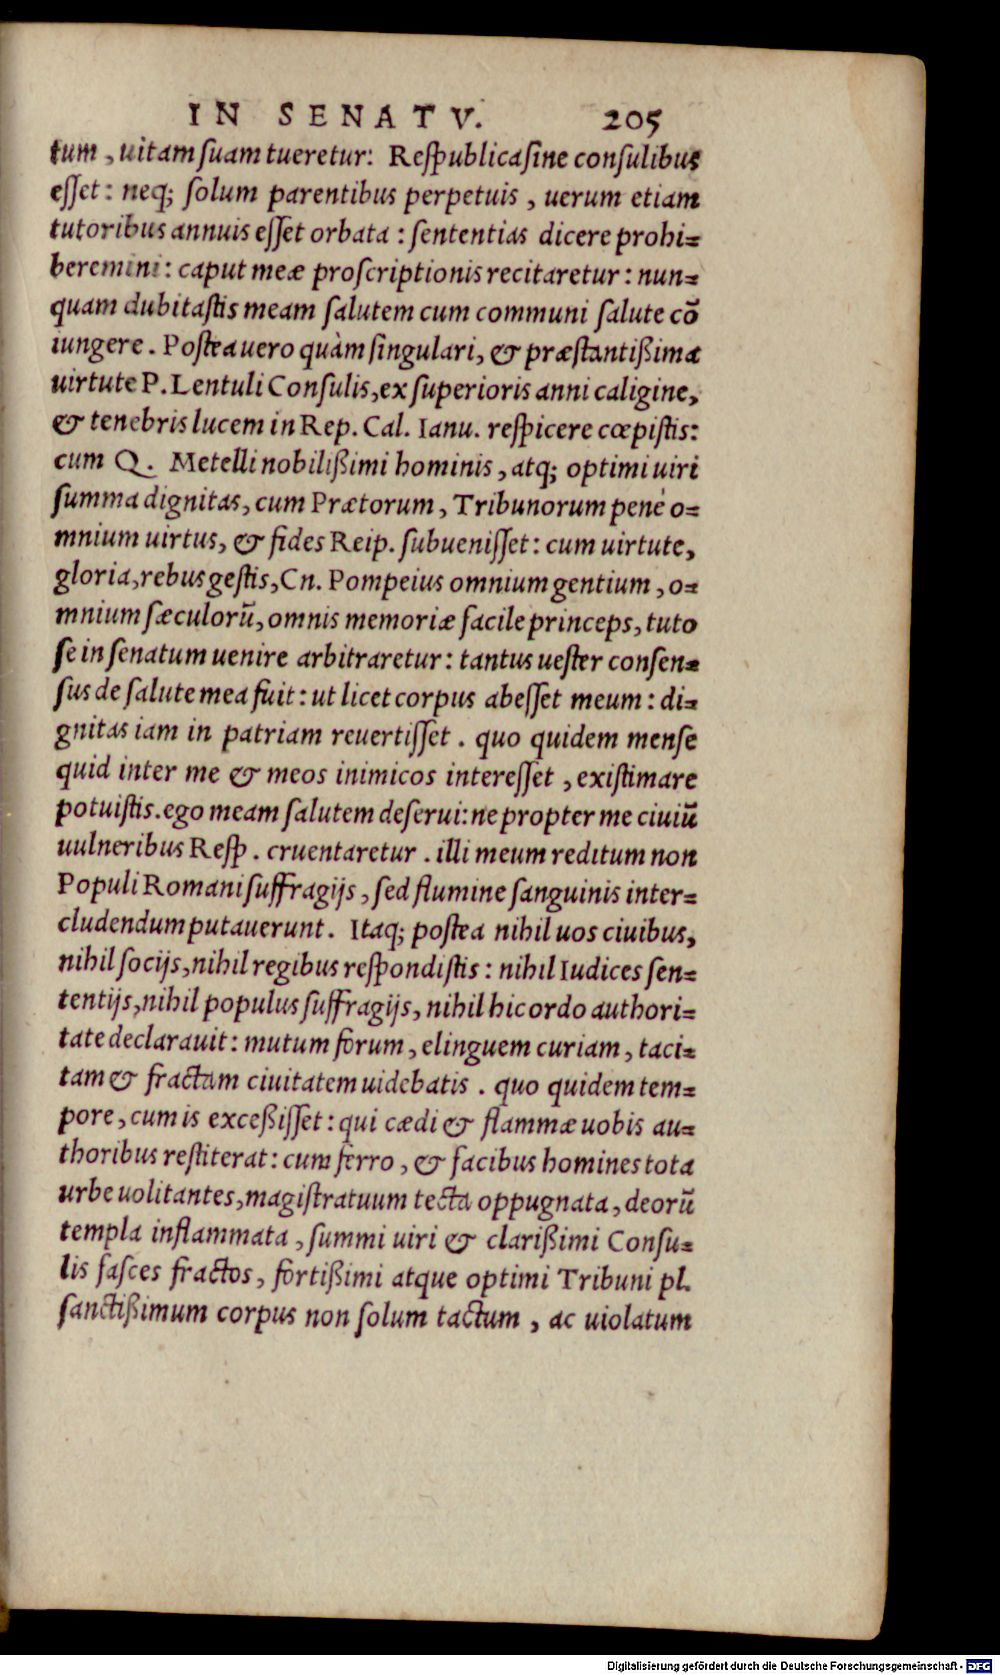 IN SENATV. 205
tum, uitam suam tueretur: Respublica sine consulibus
esset: neq; solum parentibus perpetuis, uerum etiam
tutoribus annuis esset orbata: sententias dicere prohi=
beremini: caput meæ proscriptionis recitaretur: nun=
quam dubitastis meam salutem cum communi salute cõ
iungere. Postea uero quàm singulari, & præstantißima
uirtute P. Lentuli Consulis, ex superioris anni caligine,
& tenebris lucem in Rep. Cal. Ianu. respicere cœpistis:
cum Q. Metelli nobilißimi hominis, atq; optimi uiri
summa dignitas, cum Prætorum, Tribunorum penè o=
mnium uirtus, & fides Reip. subuenisset: cum uirtute,
gloria, rebus gestis, Cn. Pompeius omnium gentium, o=
mnium sæculorũ, omnis memoriæ facile princeps, tuto
se in senatum uenire arbitraretur: tantus uester consen=
sus de salute mea fuit: ut licet corpus abesset meum: di=
gnitas iam in patriam reuertisset. quo quidem mense
quid inter me & meos inimicos interesset, existimare
potuistis. ego meam salutem deserui: ne propter me ciuiũ
uulneribus Resp. cruentaretur. illi meum reditum non
Populi Romani suffragijs, sed flumine sanguinis inter=
cludendum putauerunt. Itaq; postea nihil uos ciuibus,
nihil socijs, nihil regibus respondistis: nihil Iudices sen=
tentijs, nihil populus suffragijs, nihil hic ordo authori=
tate declarauit: mutum forum, elinguem curiam, taci=
tam & fractam ciuitatem uidebatis. quo quidem tem=
pore, cum is exceßisset: qui cædi & flammæ uobis au=
thoribus restiterat: cum ferro, & facibus homines tota
urbe uolitantes, magistratuum tecta oppugnata, deorũ
templa inflammata, summi uiri & clarißimi Consu=
lis fasces fractos, fortißimi atque optimi Tribuni pl.
sanctißimum corpus non solum tactum, ac uiolatum
Digitalisierung gefördert durch die Deutsche Forschungsgemeinschaft - DFG